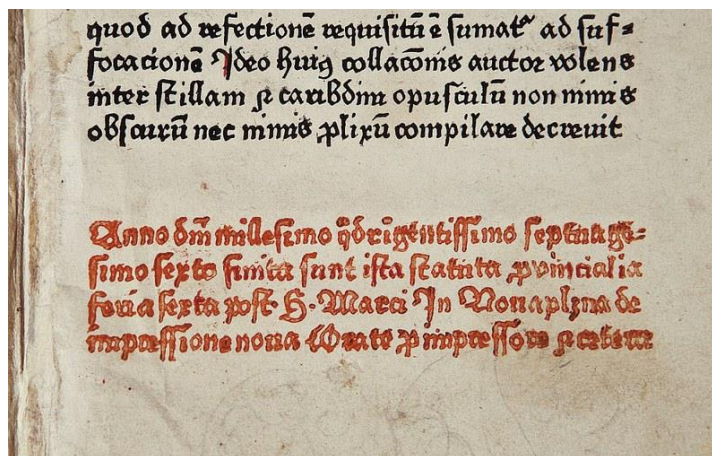 quod ad refectionē requisitū ē sumat᷑ ad suf-
focacionē Ideo huiꝯ collacōnis auctor volens
inter scillam ⁊ caribdim opusculū non nimis
obscurū nec nimis ꝓlixū compilare decrevit
Anno dm̄ millesimo qͥdrigentissimo septuage-
simo sexto finita sunt ista statuta ꝓvincialia
feria sexta post· S· Marci In Novaplzna de
impressione nova Orate ꝓ impressore ⁊ cetera